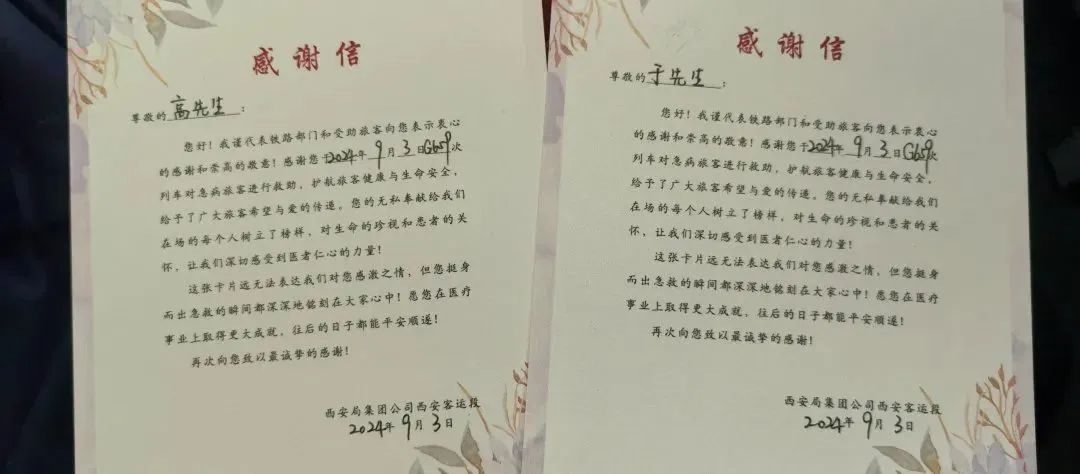 感谢信
尊敬的高先生：
您好！我谨代表铁路部门和受助旅客向您表示衷心
的感谢和崇高的敬意！感谢您于2024年9月3日G659次
列车对急病旅客进行救助，护航旅客健康与生命安全，
给予了广大旅客希望与爱的传递。您的无私奉献给我们
在场的每个人树立了榜样，对生命的珍视和患者的关
怀，让我们深切感受到医者仁心的力量！
这张卡片远无法表达我们对您感激之情，但您挺身
而出急救的瞬间都深深地铭刻在大家心中！愿您在医疗
事业上取得更大成就，往后的日子都能平安顺遂！
再次向您致以最诚挚的感谢！
西安局集团公司西安客运段
2024年9月3日
感谢信
尊敬的于先生：
您好！我谨代表铁路部门和受助旅客向您表示衷心
的感谢和崇高的敬意！感谢您于2024年9月3日G659次
列车对急病旅客进行救助，护航旅客健康与生命安全，
给予了广大旅客希望与爱的传递。您的无私奉献给我们
在场的每个人树立了榜样，对生命的珍视和患者的关
怀，让我们深切感受到医者仁心的力量！
这张卡片远无法表达我们对您感激之情，但您挺身
而出急救的瞬间都深深地铭刻在大家心中！愿您在医疗
事业上取得更大成就，往后的日子都能平安顺遂！
再次向您致以最诚挚的感谢！
西安局集团公司西安客运段
2024年9月3日